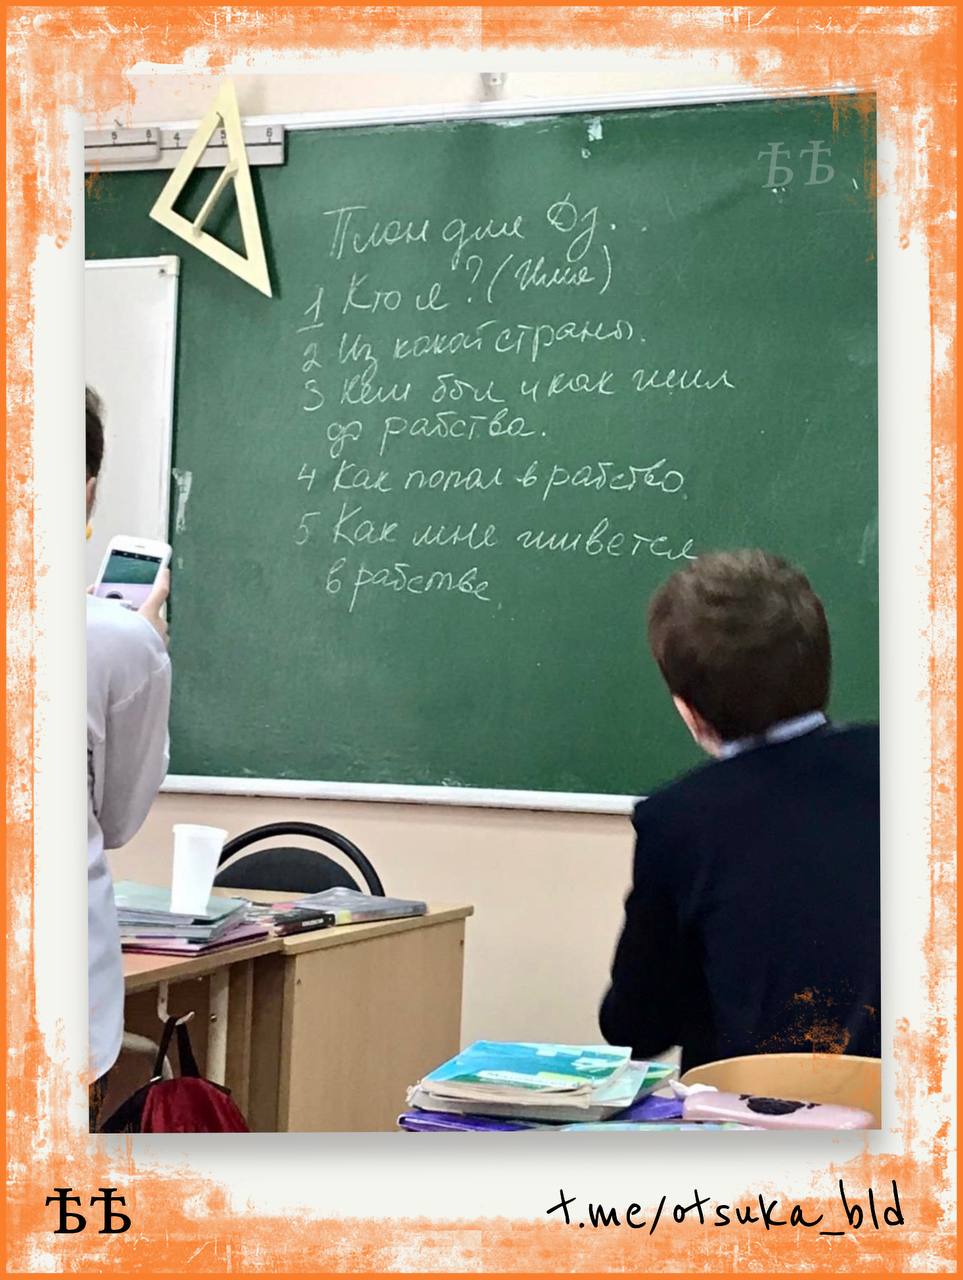 ѢѢ
План для Дз.
1 Кто я? (Имя)
2 Из какой страны.
3 Кем был и как жил
до рабства.
4 Как попал в рабство.
5 Как мне живется
в рабстве
ѢѢ
t.me/otsuka_bld